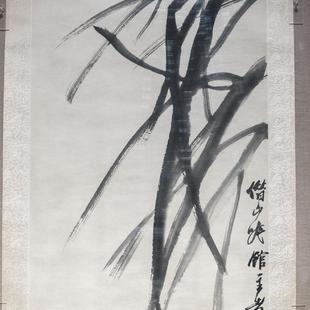 借山吟館主者